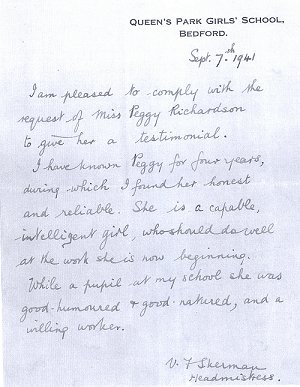 QUEEN'S PARK GIRLS' SCHOOL,
BEDFORD.
Sept. 7.th 1941
I am pleased to comply with the
request of Miss Peggy Richardson
to give her a testimonial.
I have known Peggy for four years,
during which I found her honest
and reliable. She is a capable,
intelligent girl, who should do well
at the work she is now beginning.
While a pupil at my school she was
good-humoured & good-natured, and a
willing worker.
V. F Sherman
Headmistress.